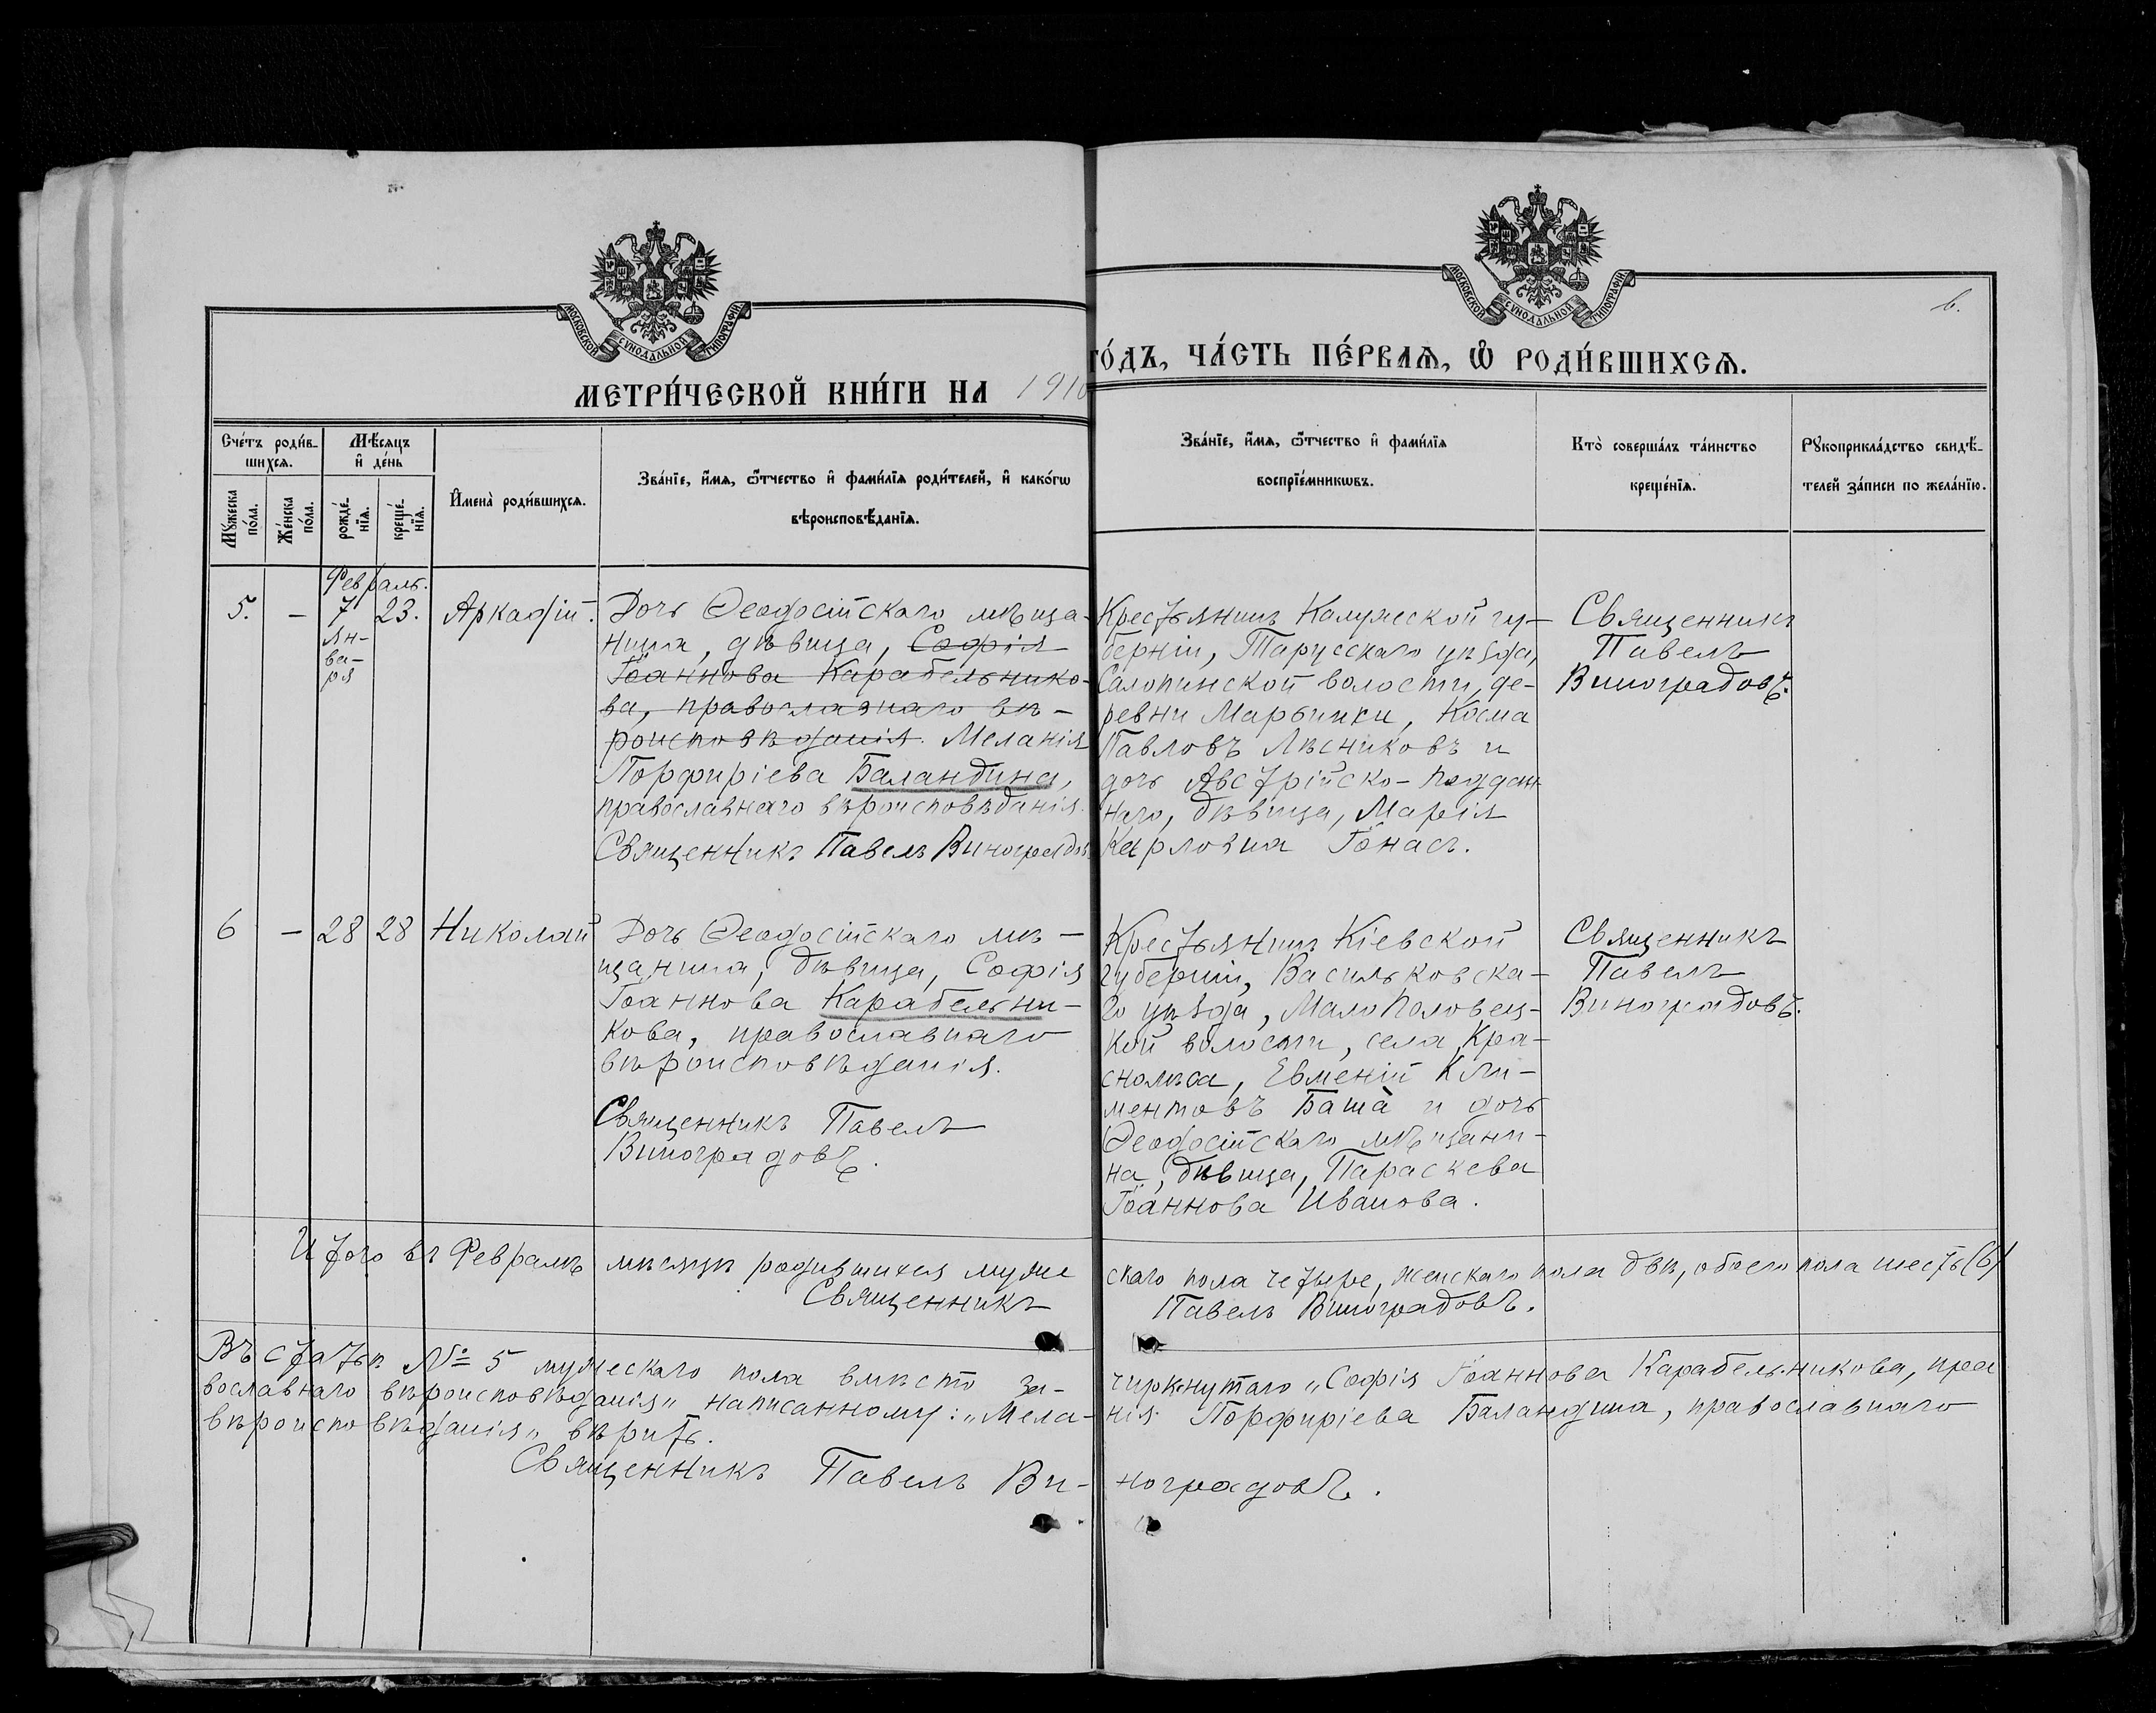 МОСКОВСКОЙ СѴНОДАЛЬНОЙ ТИПОГРАФІИ
МОСКОВСКОЙ СѴНОДАЛЬНОЙ ТИПОГРАФІИ
6.
МЕТРИ́ЧЕСКОЙ КНИ́ГИ НА 1910
ГО́ДЪ, ЧА́СТЬ ПЕ́РВАѦ, Ѽ РОДИ́ВШИХСѦ.
Сче́тъ роди́в-
шихсѧ.
Мꙋжеска по́ла.
Же́нска по́ла.
Мѣ́сѧцъ
и҆ де́нь
рожде́-
нїѧ.
креще́-
нїѧ.
И҆мена̀ роди́вшихсѧ.
Зва́нїе, и҆́мѧ, ѻ҆́тчество и҆ фами́лїѧ роди́телей, и҆ како́гѡ
вѣроисповѣ́данїѧ.
Зва́нїе, и҆́мѧ, ѻ҆́тчество и҆ фами́лїѧ
воспрїе́мникѡвъ.
Кто̀ соверша́лъ та́инство
креще́нїѧ.
Рꙋкоприкла́дство свидѣ́-
телей за́писи по жела́нїю.
Февраль.
5. – 7 23. Аркадій.
Ян-
ва-
ря
Дочь Ѳеодосійскаго мѣща-
нина, дѣвица, Софія
Іоаннова Карабельнико-
ва, православнаго вѣ-
роисповѣданія. Меланія
Порфиріева Баландина,
православнаго вѣроисповѣданія.
Священникъ Павелъ Виноградовъ
Крестьянинъ Калужской гу-
берніи, Тарусскаго уѣзда,
Салопинской волости, де-
ревни Марьинки, Косма
Павловъ Лѣсниковъ и
дочь Австрійско-поддан-
наго, дѣвица, Марія
Карловна Іонасъ.
Священникъ
Павелъ
Виноградовъ.
6 – 28 28 Николай
Дочь Ѳеодосійскаго мѣ-
щанина, дѣвица, Софія
Іоаннова Карабельни-
кова, православнаго
вѣроисповѣданія.
Священникъ Павелъ
Виноградовъ.
Крестьянинъ Кіевской
губерніи, Васильковска-
го уѣзда, Малополовец-
кой волости, села Кра-
снолѣса, Евменій Кли-
ментовъ Баша и дочь
Ѳеодосійскаго мѣщани-
на, дѣвица, Параскева
Іоаннова Иванова.
Священникъ
Павелъ
Виноградовъ.
Итого въ Февралѣ мѣсяцѣ родившихся муже
скаго пола четыре, женскаго пола двѣ, обоего пола шесть (6)
Священникъ
Павелъ Виноградовъ.
Въ статьѣ № 5 мужескаго пола вмѣсто за-
черкнутаго „Софія Іоаннова Карабельникова, пра
вославнаго вѣроисповѣданія" написанному: „Мела-
нія Порфиріева Баландина, православнаго
вѣроисповѣданія" вѣрить.
Священникъ Павелъ Ви-
ноградовъ.